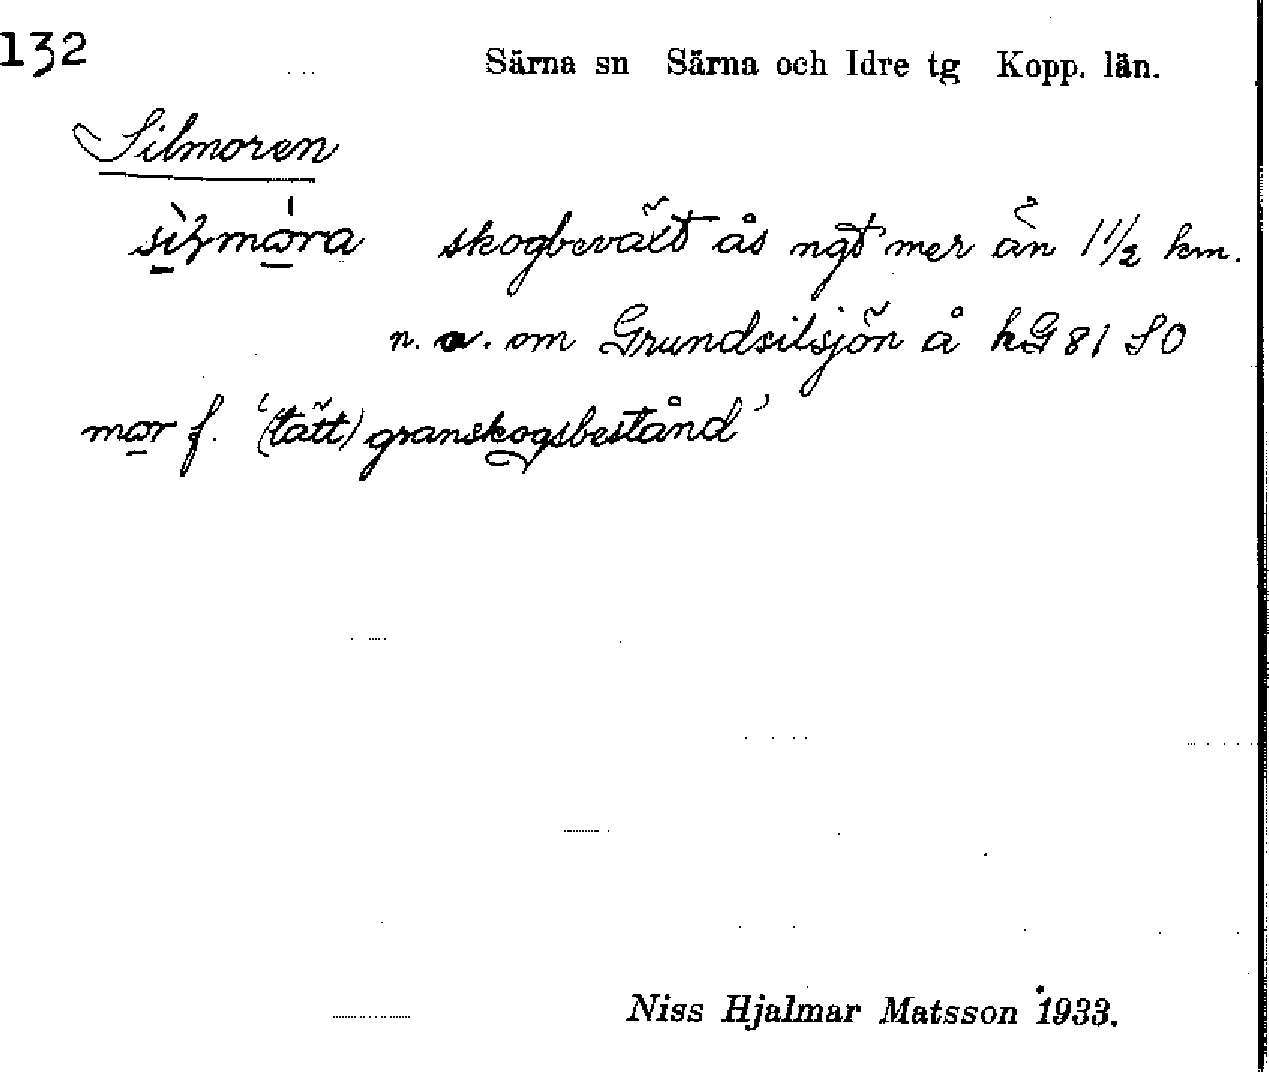 132
Särna sn Särna och Idre tg Kopp. län.
Silmoren
skogbeväxt ås ngt mer än 1 1/2 km.
n. o. om Grundsilsjön å hG 81 SO
mor f. '(tätt) granskogsbestånd'
Niss Hjalmar Matsson 1933.